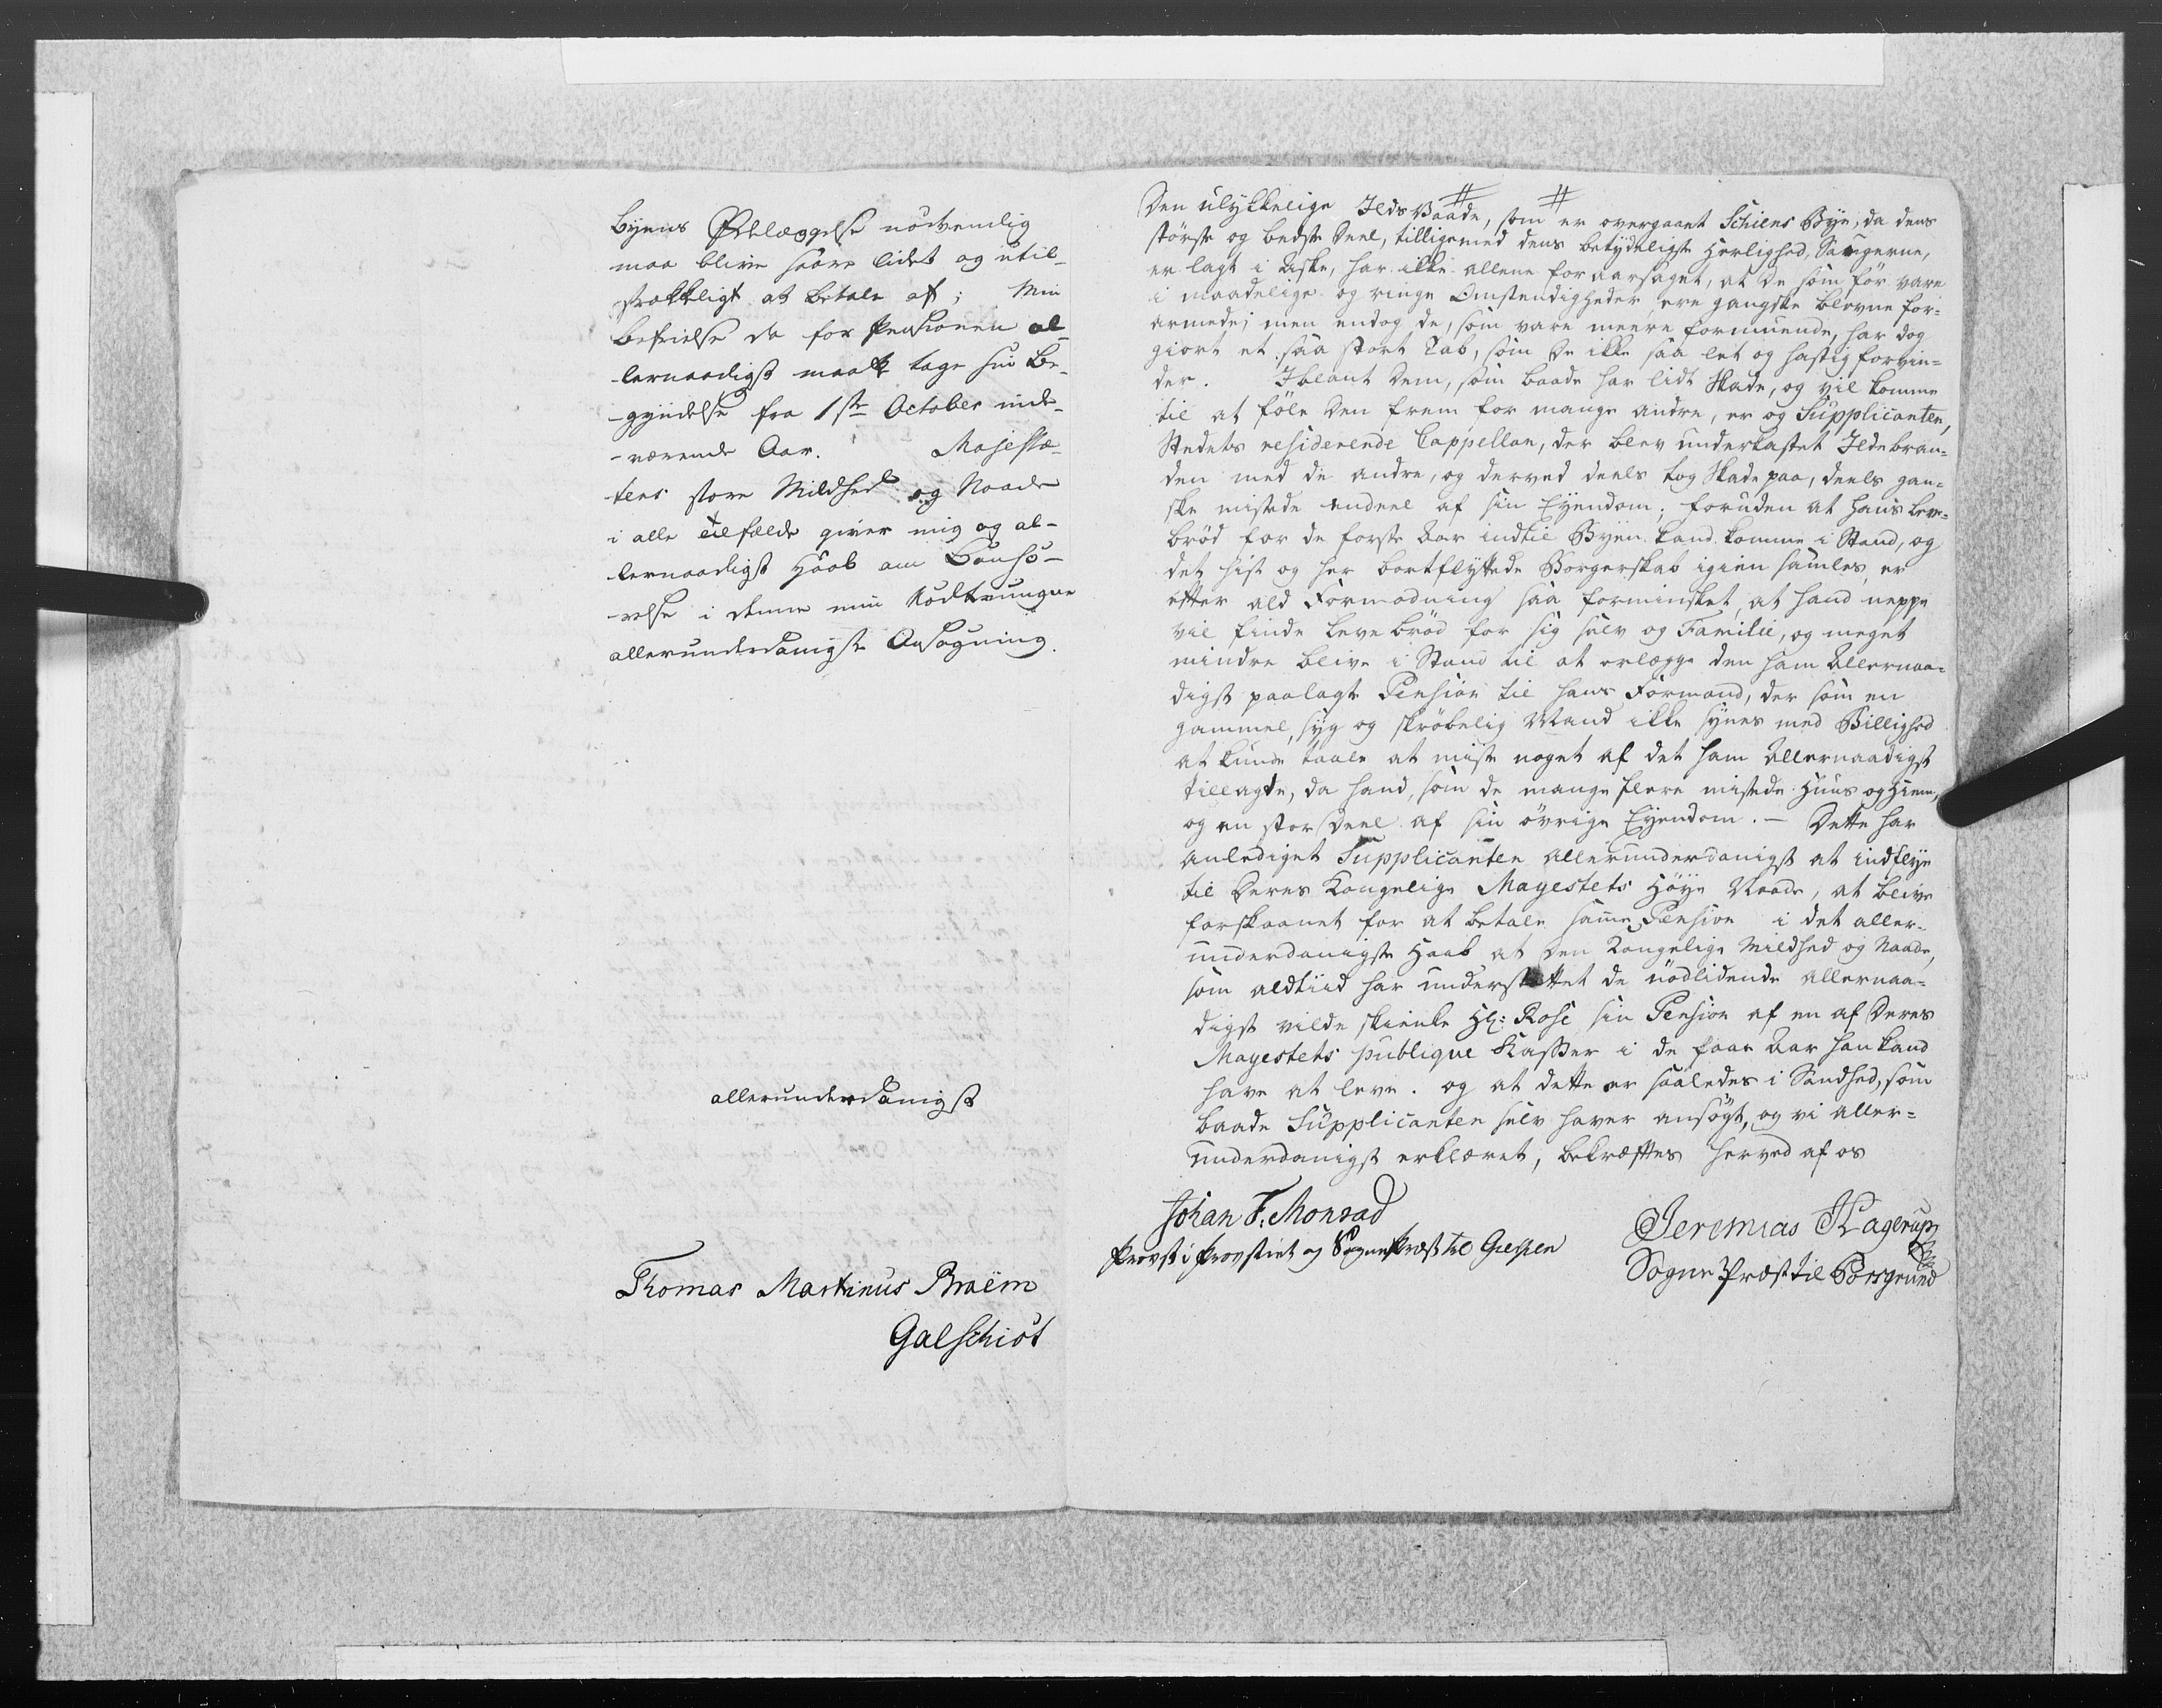 Byens Ødelæggelse nødvendig
maa blive saare lidet og util-
strækkeligt at betale af; Min
befrielse da for Pensionen al-
lernaadigst maatte tage sin Be-
gyndelse fra 1ste October inde-
-værende Aar. Majestæ-
tens store Mildhed og Naade
i alle tilfælde giver mig og al-
lernaadigst Haab om Bønhø-
-relse i denne min Nødtrungne
allerunderdanigste Ansøgning.
allerunderdanigst
Thomas Martinus Braëm
Galschiøt
Den ulykkelige Ilds Vaade, som er overgaaet Schiens Bye, da dens
største og bedste Deel, tilligemed dens betydeligste Herlighed, Saugerne,
er lagt i Aske, har ikke allene foraarsaget, at De som før vare
i maadelige og ringe Omstendigheder, ere gangske blevne for-
armede; men endog de, som vare meere formuende, har dog
giort et saa stort Tab, som De ikke saa let og hastig forvin-
der. Iblant Dem, som baade har lidt Skade, og vil komme
til at føle Den frem for mange andre, er og Supplicanten,
Stedets residerende Cappellan, der blev underkastet Ildebran-
den med de andre, og derved deels tog Skade paa, deels gan-
ske mistede endeel af sin Eyendom; foruden at hans Leve-
brød for de første Aar indtil Byen kand komme i Stand, og
det hist og her bortflyttede Borgerskab igien samles, er
efter ald Formodning saa forminsket, at hand neppe
vil finde Levebrød for sig selv og Familie, og meget
mindre blive i Stand til at erlægge den ham Allernaa-
digst paalagte Pension til hans Formand, der som en
gammel, syg og skrøbelig Mand ikke synes med Billighed
at kunde taale at miste noget af det ham Allernaadigst
tillagte, da hand, som de mange flere mistede Huus og Hiem,
og en stor Deel af sin øvrige Eyendom. - Dette har
anlediget Supplicanten allerunderdanigst at indflye
til Deres Kongelige Mayestets Høye Naade, at blive
forskaanet for at betale samme Pension i det aller-
underdanigste Haab at Den Kongelige Mildhed og Naade,
som aldtiid har understøttet de nødlidende allernaa-
digst vilde skienke Hr: Rose sin Pension af en af Deres
Mayestets publique Kasser i de faae Aar han kand
have at leve. og at dette er saaledes i Sandhed, som
baade Supplicanten selv haver ansøgt, og vi aller-
underdanigst erklæret, bekræftes herved af os
Johan F. Monrad
Provst i Provstiet og Sognepræst til Gierpen
Jeremias Hagerup
Sogne Præst til Porsgrund